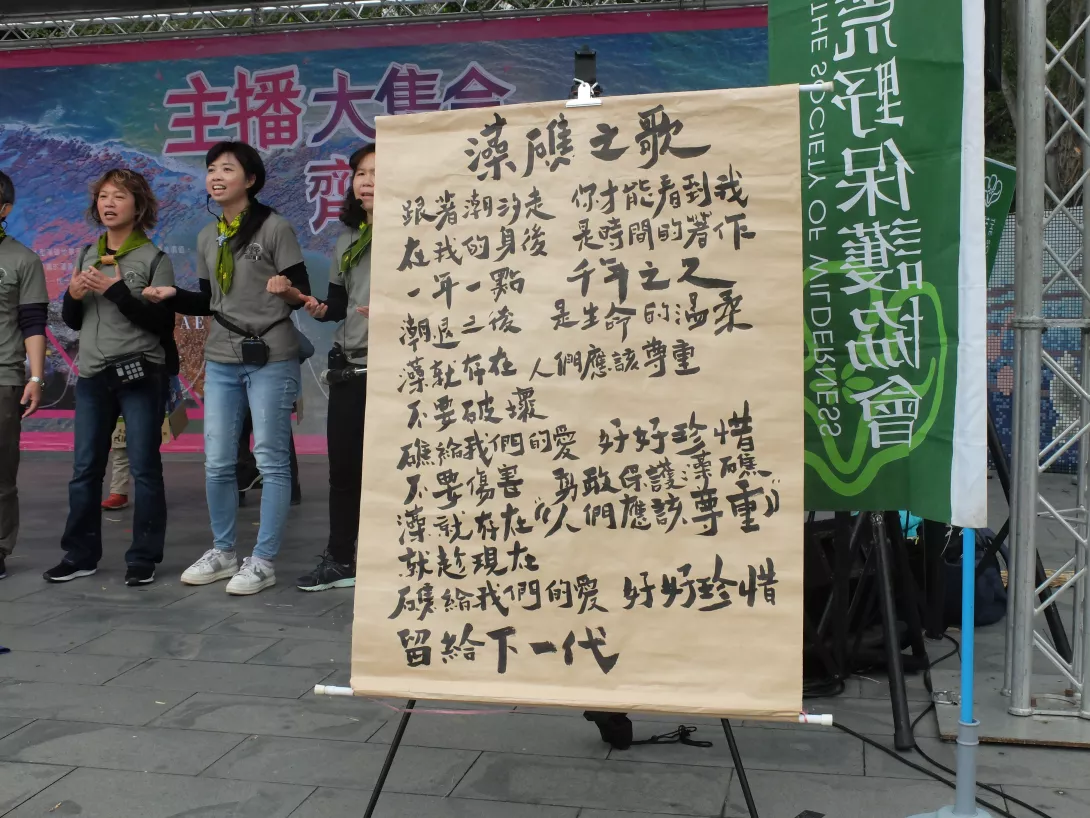 主播大集合
齊
藻礁之歌
跟著潮汐走 你才能看到我
在我的身後 是時間的著作
一年一點 千年之久
潮退之後 是生命的溫柔
藻就存在 人們應該尊重
不要破壞
礁給我們的愛 好好珍惜
不要傷害 勇敢保護藻礁
藻就存在《人們應該尊重》
就趁現在
礁給我們的愛 好好珍惜
留給下一代
荒野保護協會
THE SOCIETY OF WILDERNESS